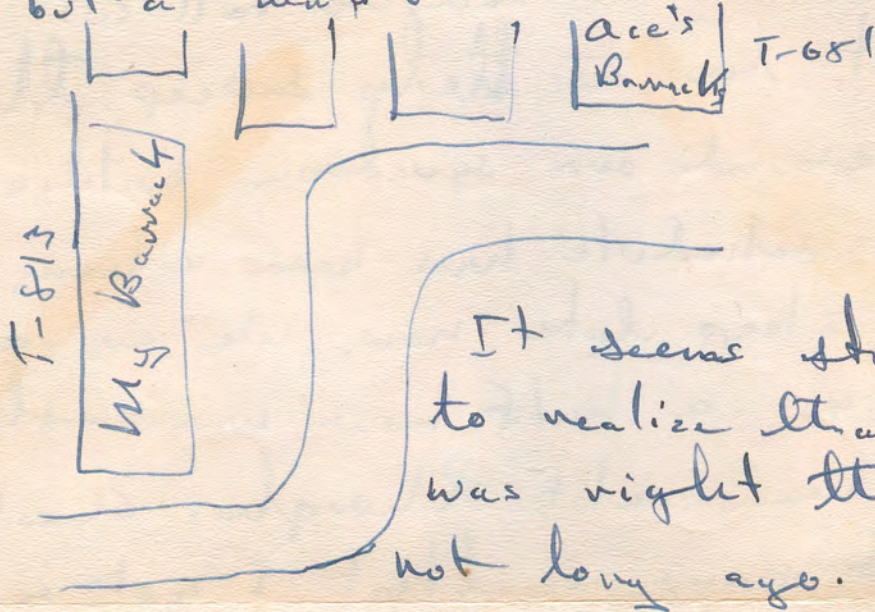 but a
Ace's
Barracks
T-681
T-813
My Barrack
It seems
to realize
was right
not long ago.